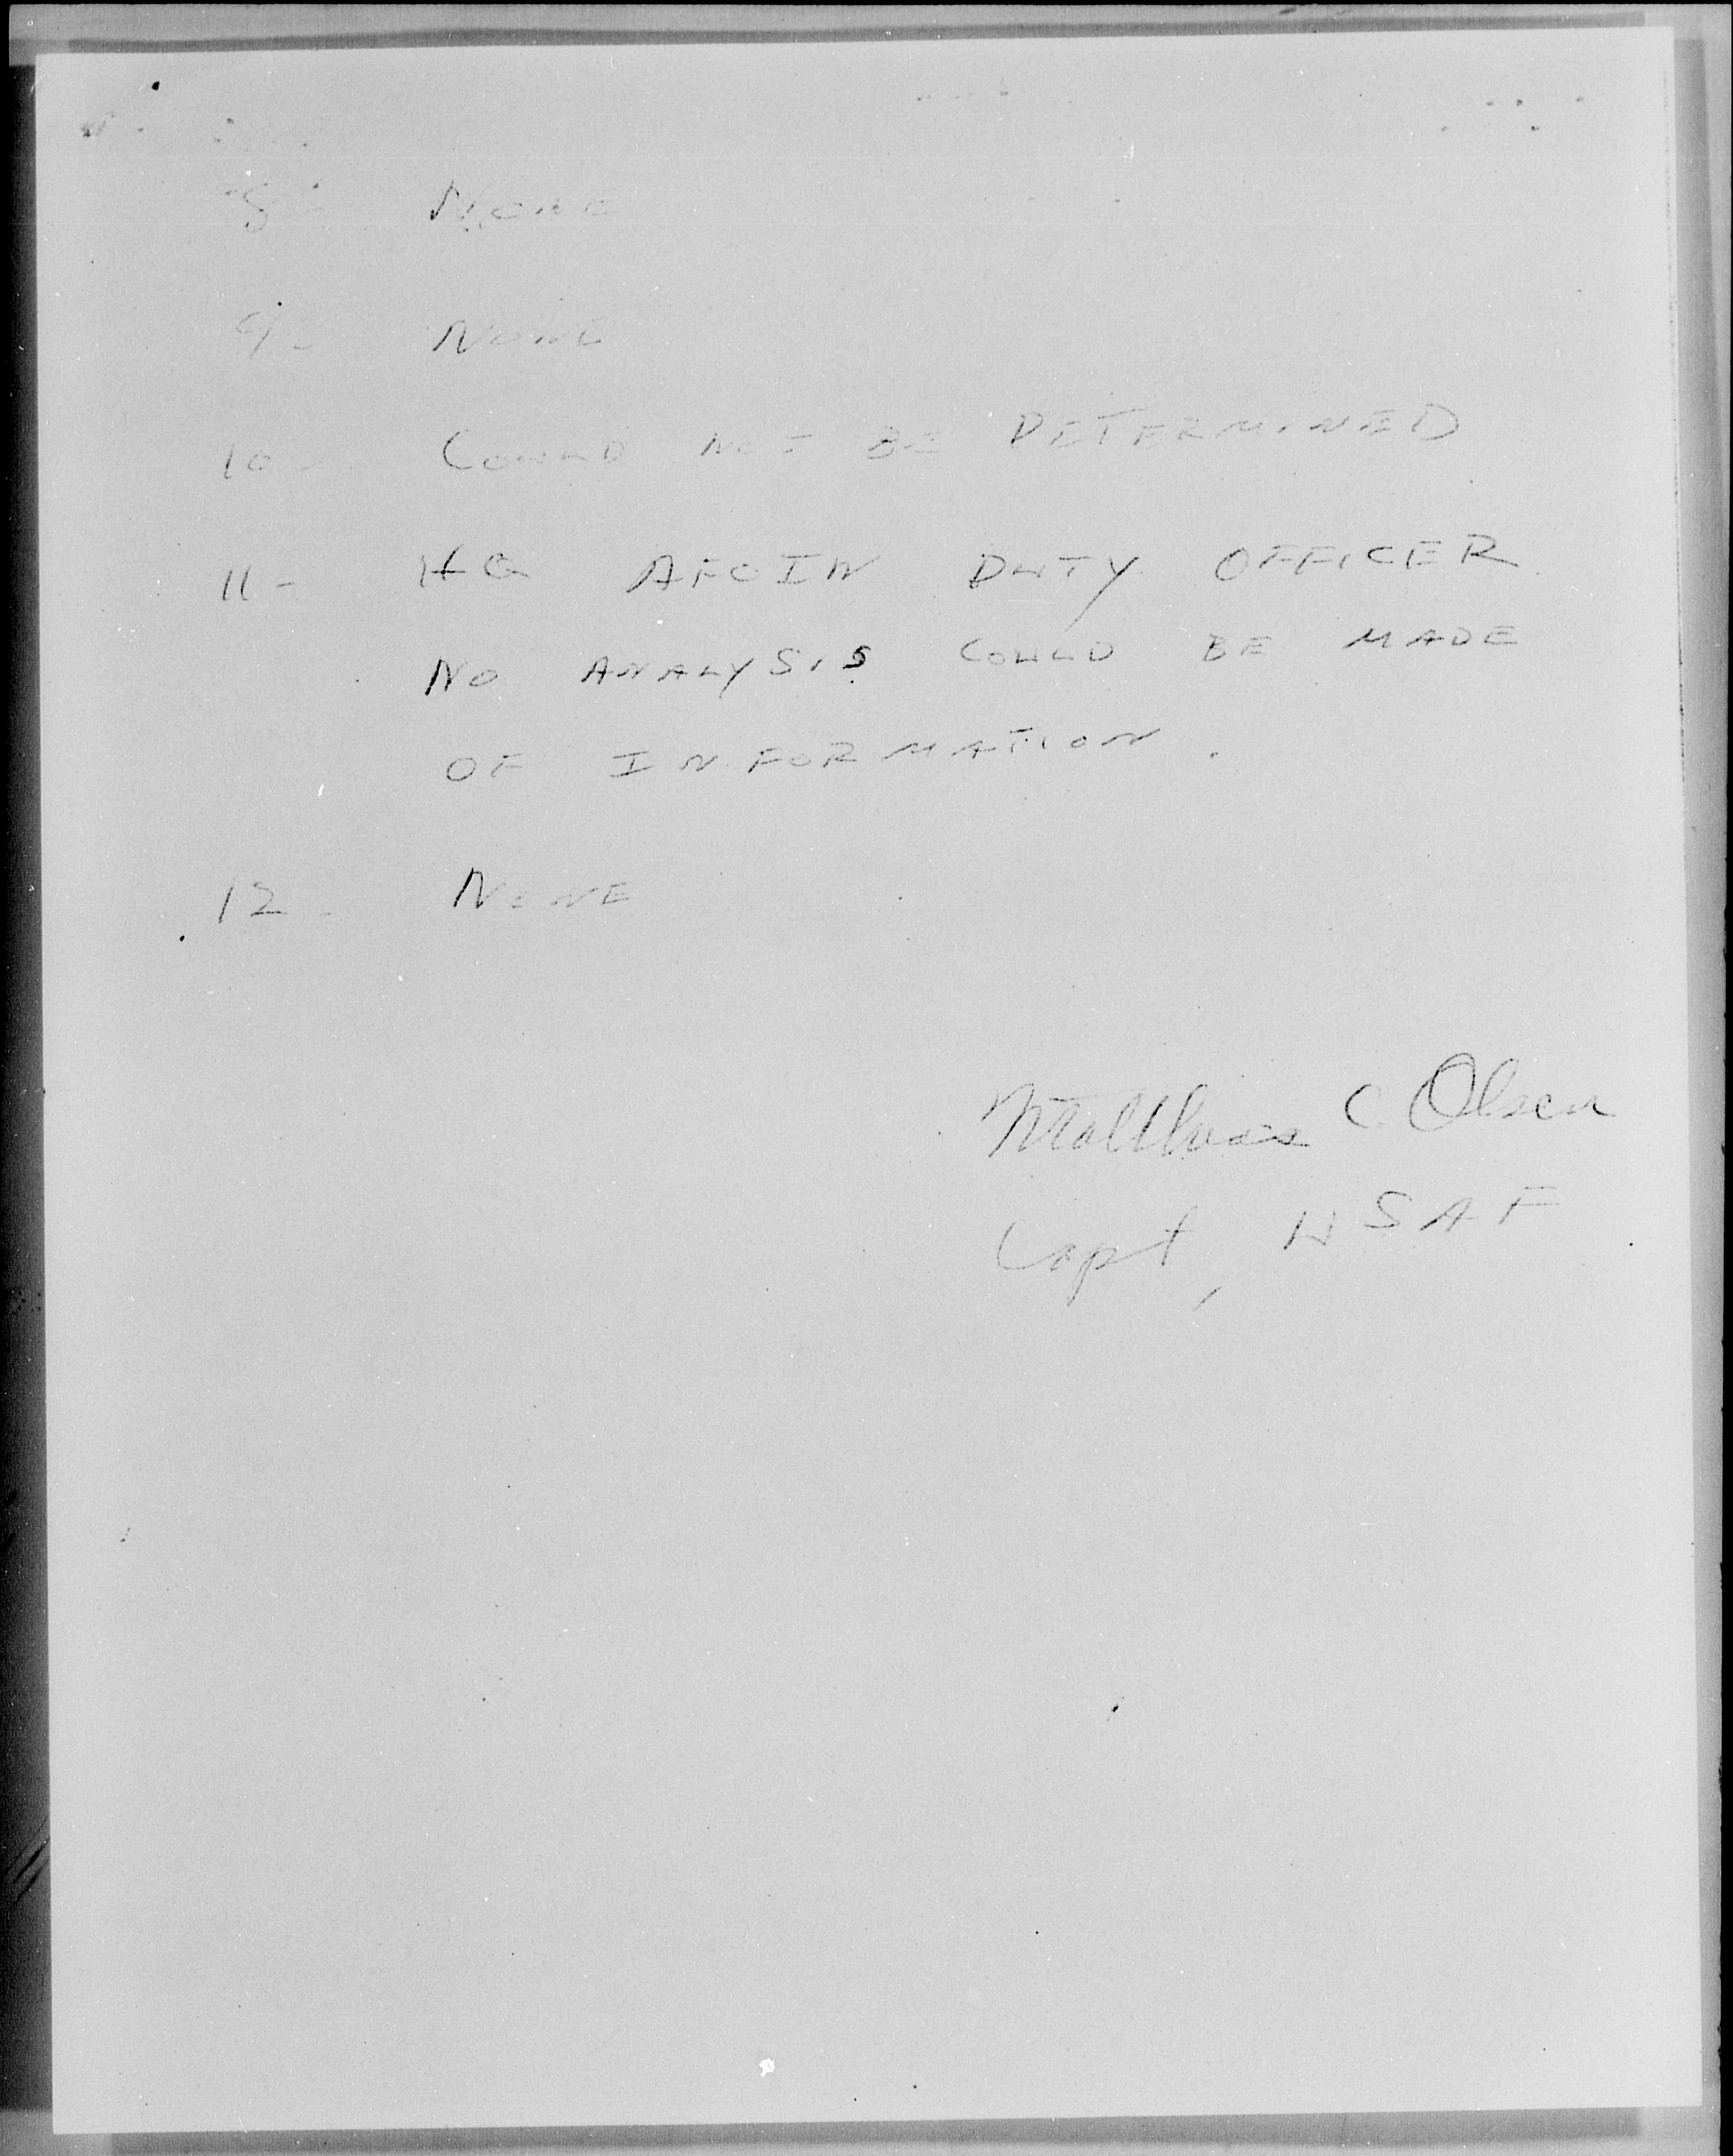 8- NONE
9- NONE
10- COULD NOT BE DETERMINED
11- HQ AFOIN DUTY OFFICER
NO ANALYSIS COULD BE MADE
OF INFORMATION.
12- NONE
C. Olsen
Capt, USAF